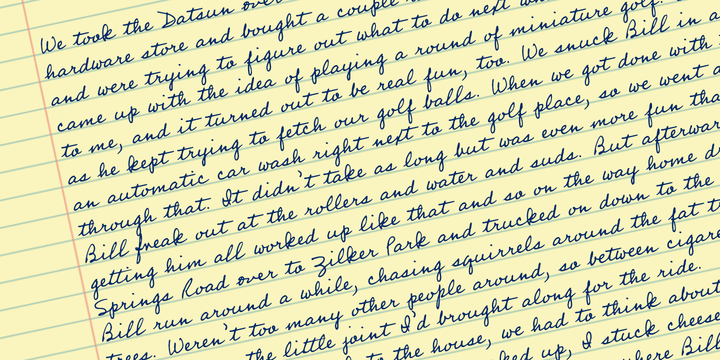 We took the Datsun over
hardware store and bought a couple
and were trying to figure out what to do next
came up with the idea of playing a round of miniature golf.
to me, and it turned out to be real fun, too. We snuck Bill in a
as he kept trying to fetch our golf balls. When we got done with
an automatic car wash right next to the golf place, so we went
through that. It didn't take as long but was even more fun
Bill freak out at the rollers and water and suds. But
getting him all worked up like that and so on the way home
Springs Road over to Zilker Park and trucked on down to the
Bill run around a while, chasing squirrels around the fat
trees. Weren't too many other people around, so between
the little joint I'd brought along for the ride.
to the house, we had to think about
up, I stuck cheese
where Bill